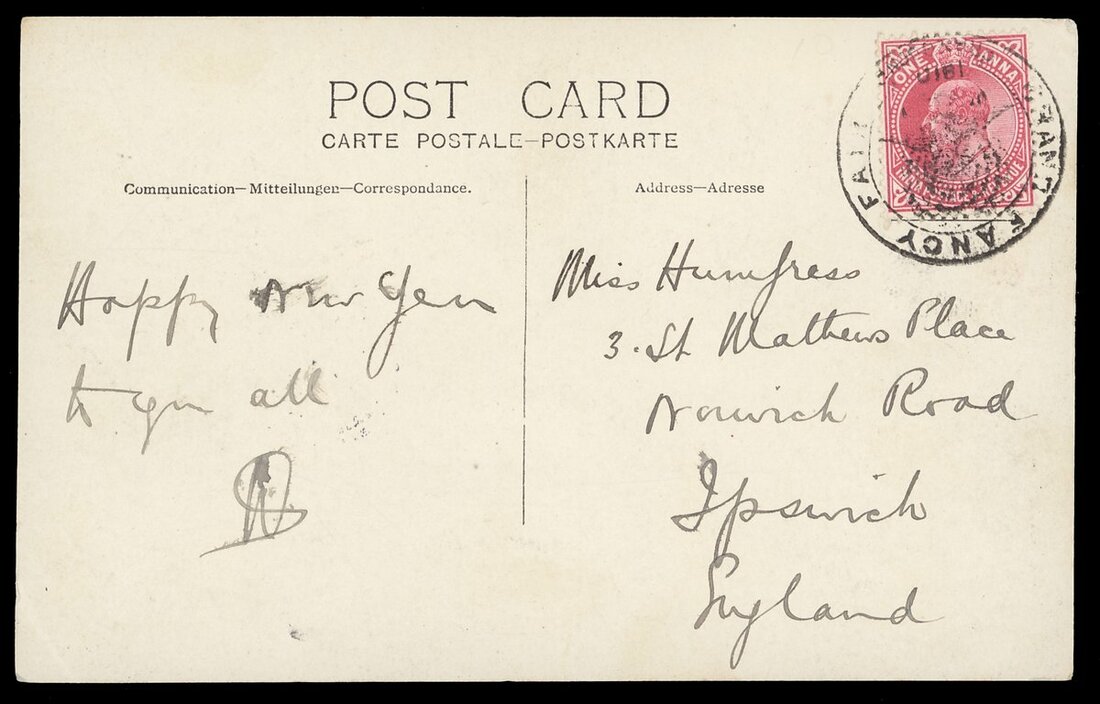 POST CARD
CARTE POSTALE–POSTKARTE
Communication–Mitteilungen–Correspondance.
Address–Adresse
ONE ANNA
GRAND FANCY FAIR
1910
Happy New Year
to you all
Miss Humfress
3. St Mathews Place
Norwich Road
Ipswich
England